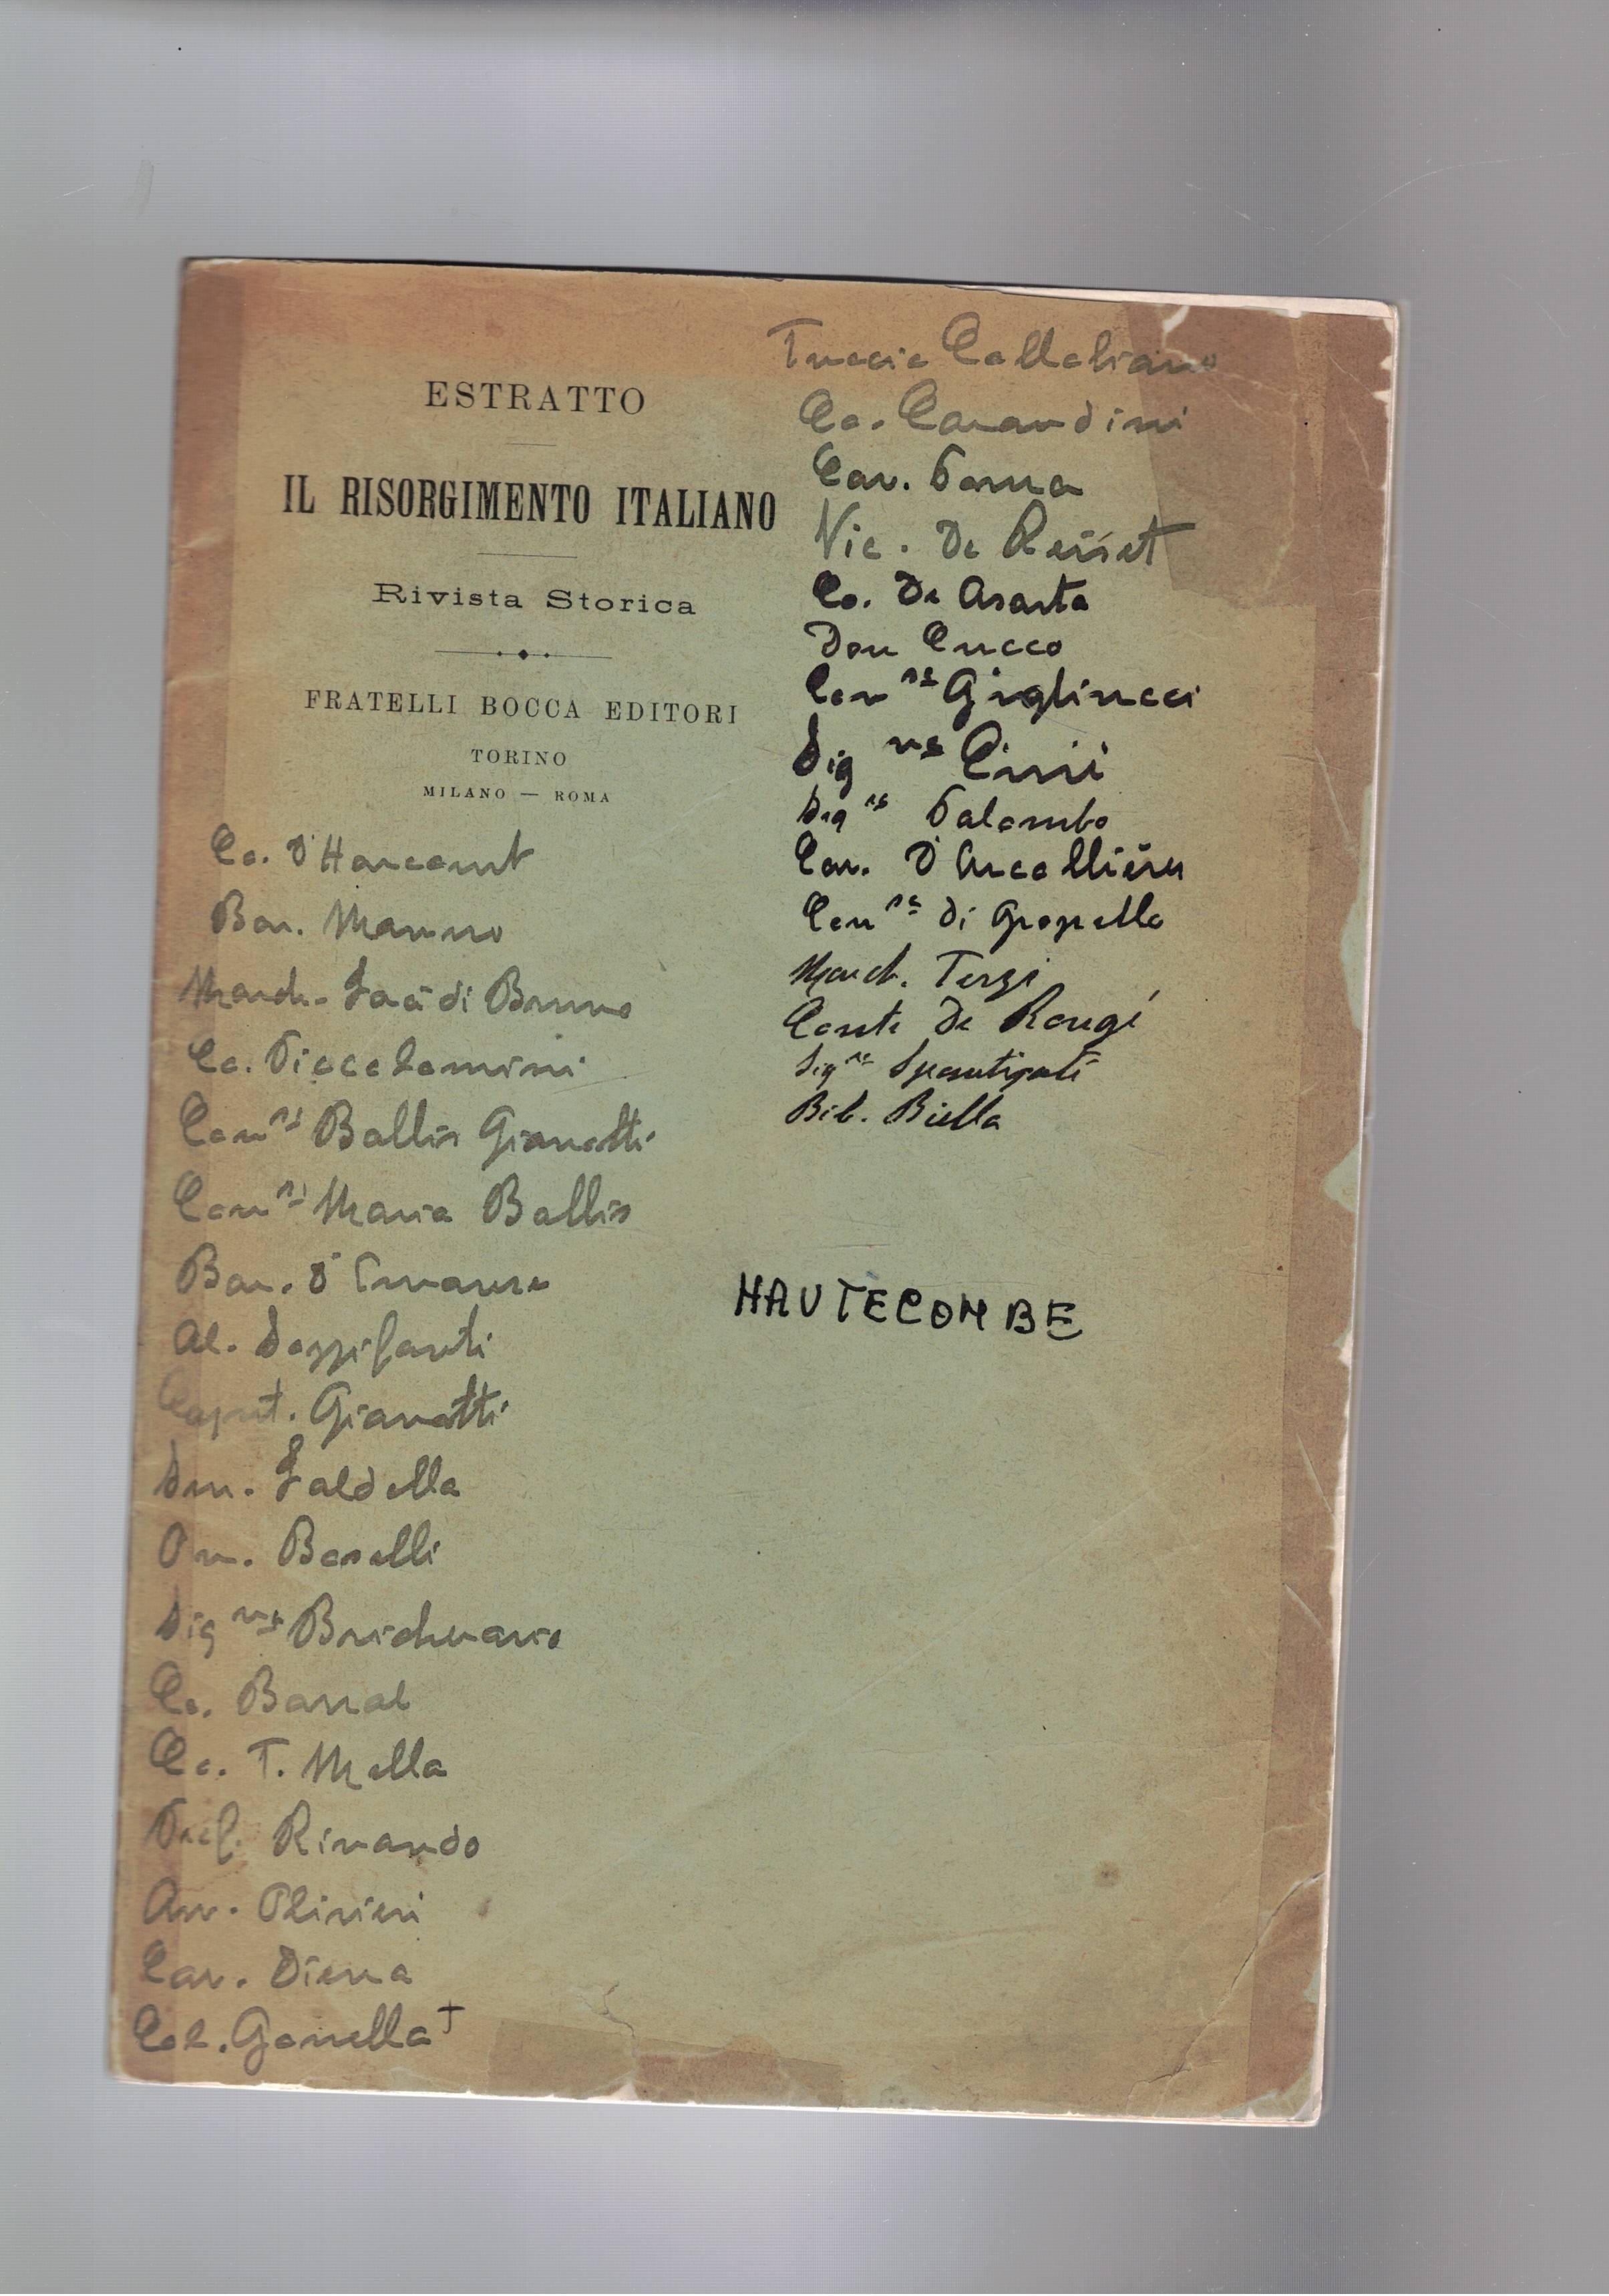 ESTRATTO
IL RISORGIMENTO ITALIANO
Rivista Storica
FRATELLI BOCCA EDITORI
TORINO
MILANO — ROMA
Co. D'Harcourt
Bar. Manno
March. Faà di Bruno
Co. Piccolomini
Con.sa Ballis Gianotti
Con.sa Maria Ballis
Bar. D'
Al. Sozzifanti
Capit. Gianotti
Sen. Faldella
On. Boselli
Sig.ra
Co. Barral
Co. T. Mella
Prof. Rinaudo
Avv. Olivieri
Cav. Diena
Col. Gonella †
Co. Carandini
Cav. Poma
Vic. De Reiset
Co. De Asarta
Don Cucco
Con.sa Gigliucci
Sig.ra Cini
Sig.ra Palombo
Cav. D'Arcollières
Con.sa di Gropello
March. Terzi
Conte De Rougé
Sig.ra
Bib. Biella
HAUTECOMBE